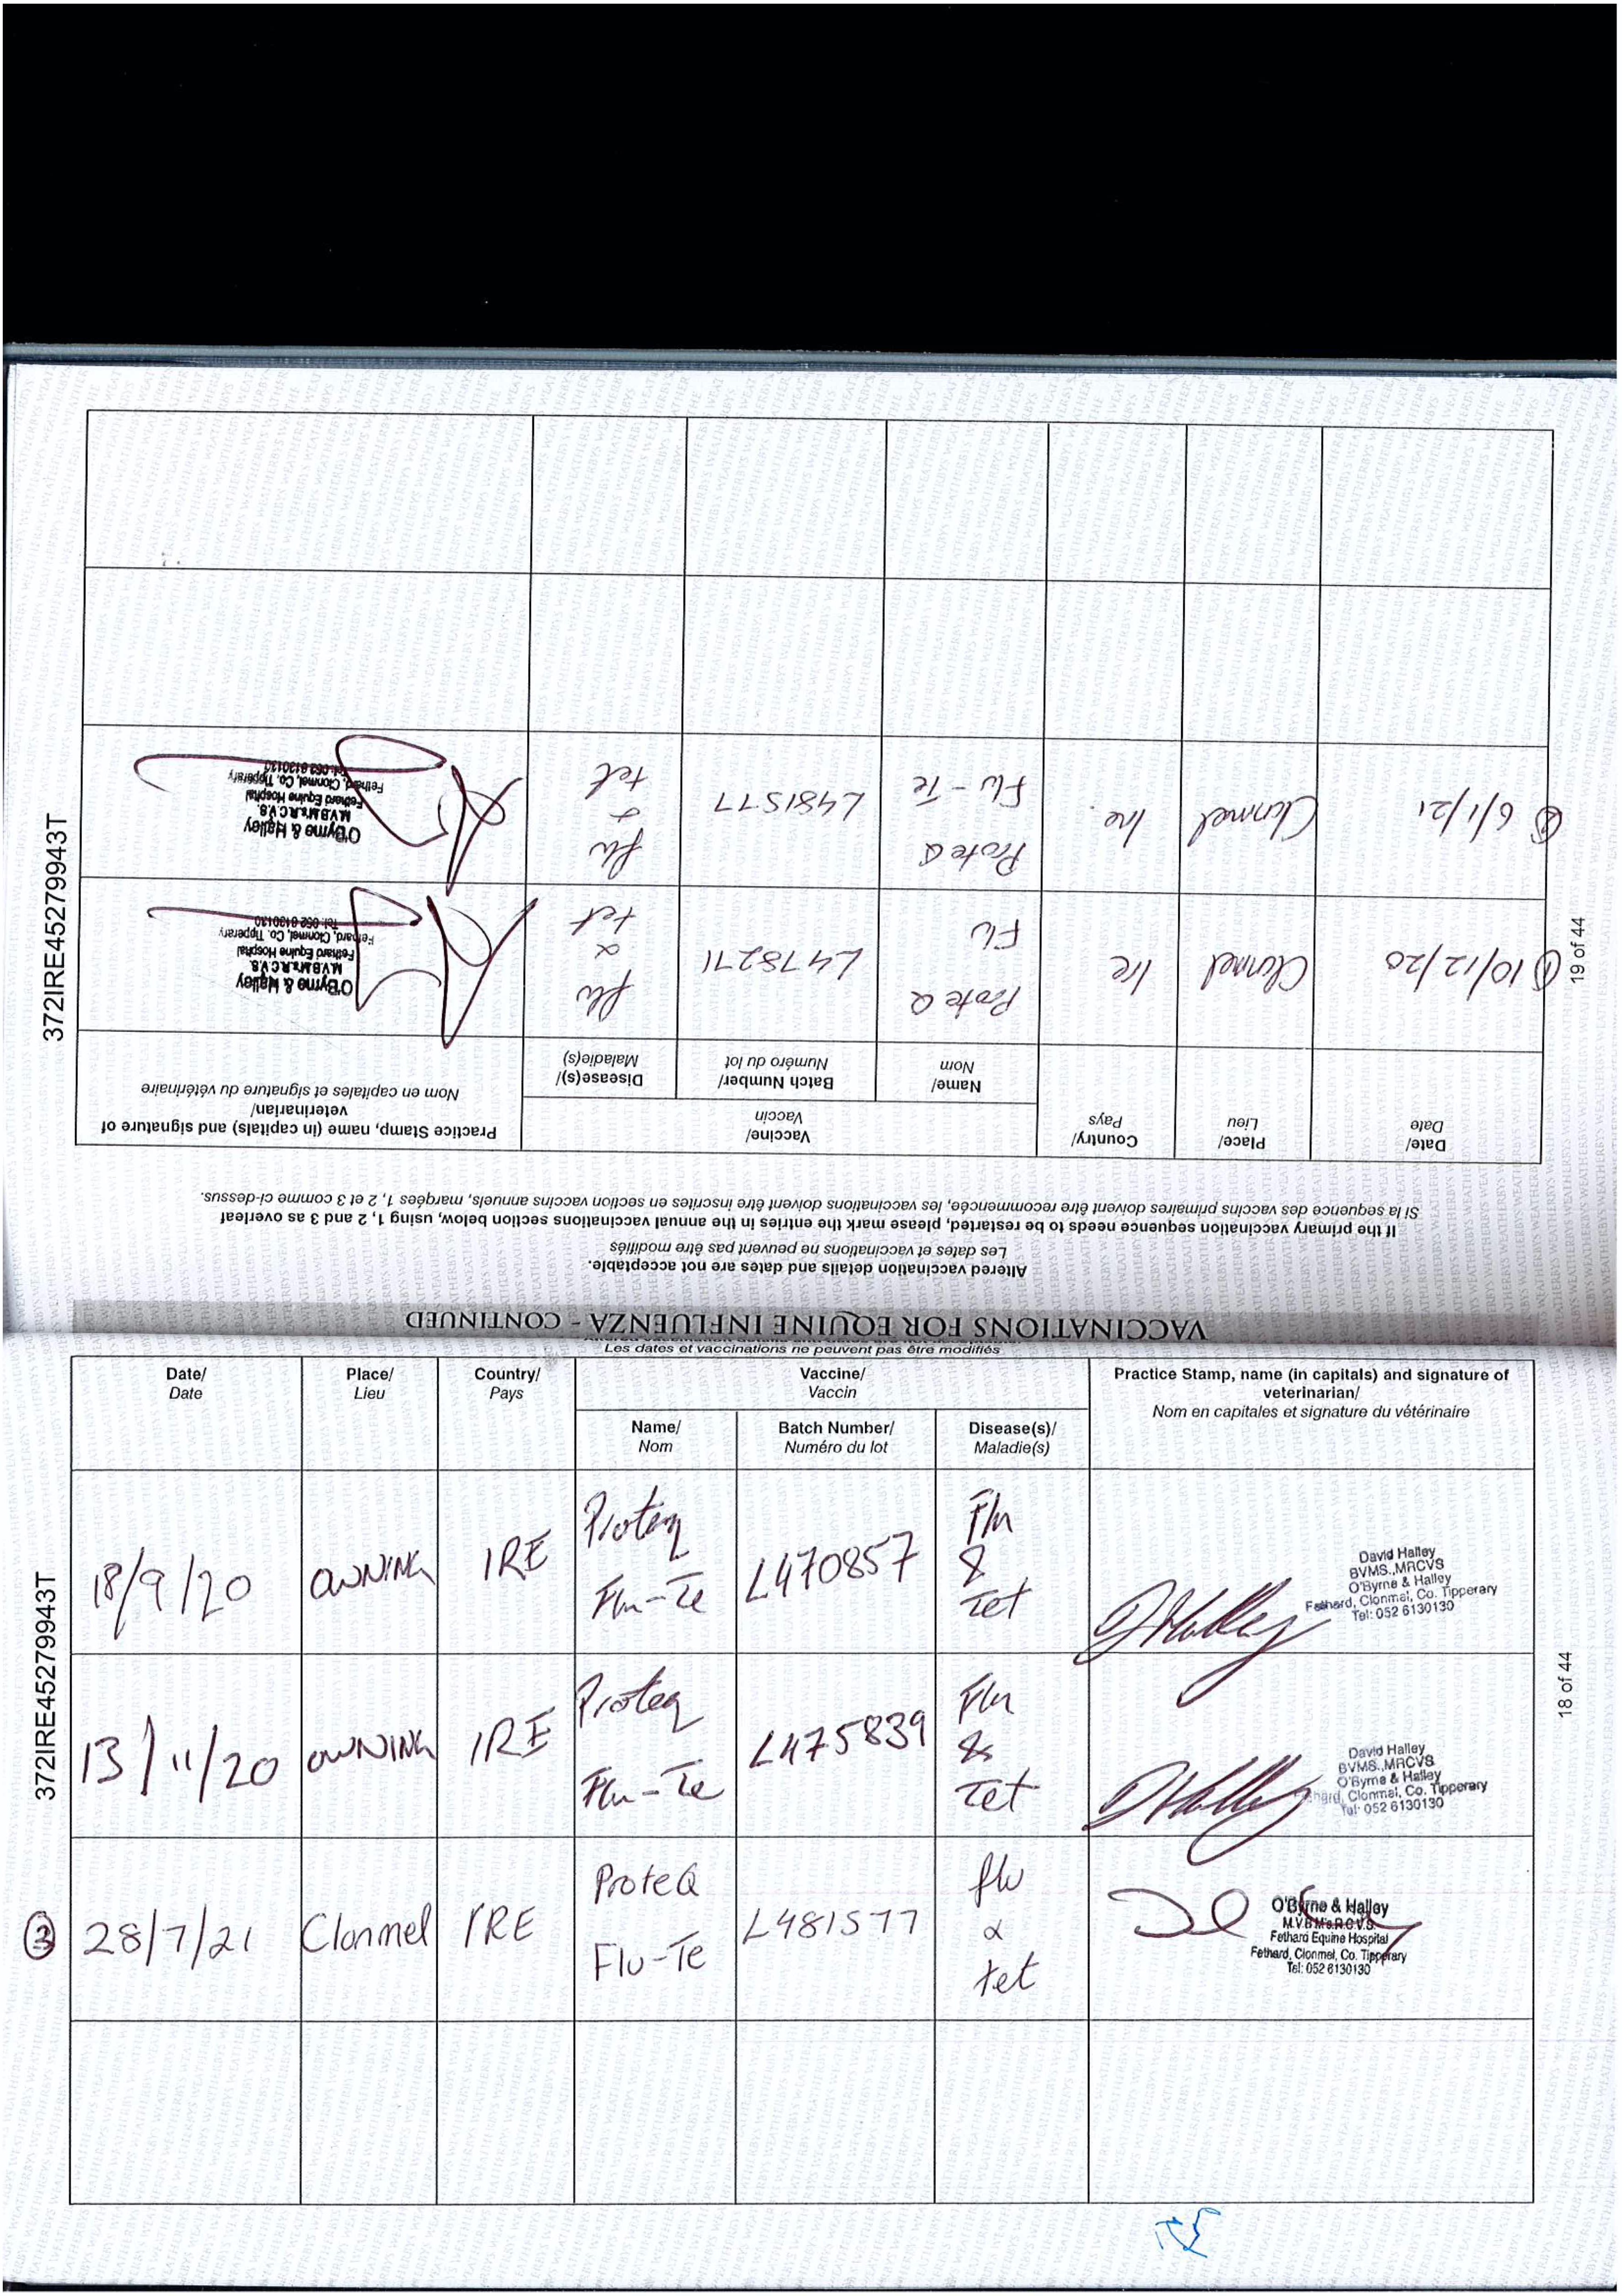 VACCINATIONS FOR EQUINE INFLUENZA - CONTINUED
Altered vaccination details and dates are not acceptable.
Les dates et vaccinations ne peuvent pas être modifiés
If the primary vaccination sequence needs to be restarted, please mark the entries in the annual vaccinations section below, using 1, 2 and 3 as overleaf
Si la sequence des vaccins primaires doivent être recommencée, les vaccinations doivent être inscrites en section vaccins annuels, margées 1, 2 et 3 comme ci-dessus.
Date/ Place/ Country/ Vaccine/ Practice Stamp, name (in capitals) and signature of
Date Lieu Pays Vaccin veterinarian/
Nom en capitales et signature du vétérinaire
Name/ Batch Number/ Disease(s)/
Nom Numéro du lot Maladie(s)
10/12/20 Clonmel Ire ProteQ L478271 flu
Flu & tet
O'Byrne & Halley
M.V.B M's.R.C.V.S.
Fethard Equine Hospital
Fethard, Clonmel, Co. Tipperary
Tel: 052 6130130
6/1/21 Clonmel Ire. ProteQ L481577 flu
Flu-Te & tet
O'Byrne & Halley
M.V.B M's.R.C.V.S.
Fethard Equine Hospital
Fethard, Clonmel, Co. Tipperary
Tel: 052 6130130
19 of 44
372IRE45279943T
Les dates et vaccinations ne peuvent pas être modifiés
Date/ Place/ Country/ Vaccine/ Practice Stamp, name (in capitals) and signature of
Date Lieu Pays Vaccin veterinarian/
Nom en capitales et signature du vétérinaire
Name/ Batch Number/ Disease(s)/
Nom Numéro du lot Maladie(s)
18/9/20 OWNING IRE Proteq L470857 Flu
Flu-Te & Tet
David Halley
BVMS.,MRCVS
O'Byrne & Halley
Fethard, Clonmel, Co. Tipperary
Tel: 052 6130130
13/11/20 OWNING IRE Proteq L475839 Flu
Flu-Te & Tet
David Halley
BVMS.,MRCVS
O'Byrne & Halley
Fethard, Clonmel, Co. Tipperary
Tel: 052 6130130
3 28/7/21 Clonmel IRE ProteQ L481577 flu
Flu-Te & tet
O'Byrne & Halley
M.V.B M's.R.C.V.S.
Fethard Equine Hospital
Fethard, Clonmel, Co. Tipperary
Tel: 052 6130130
18 of 44
372IRE45279943T